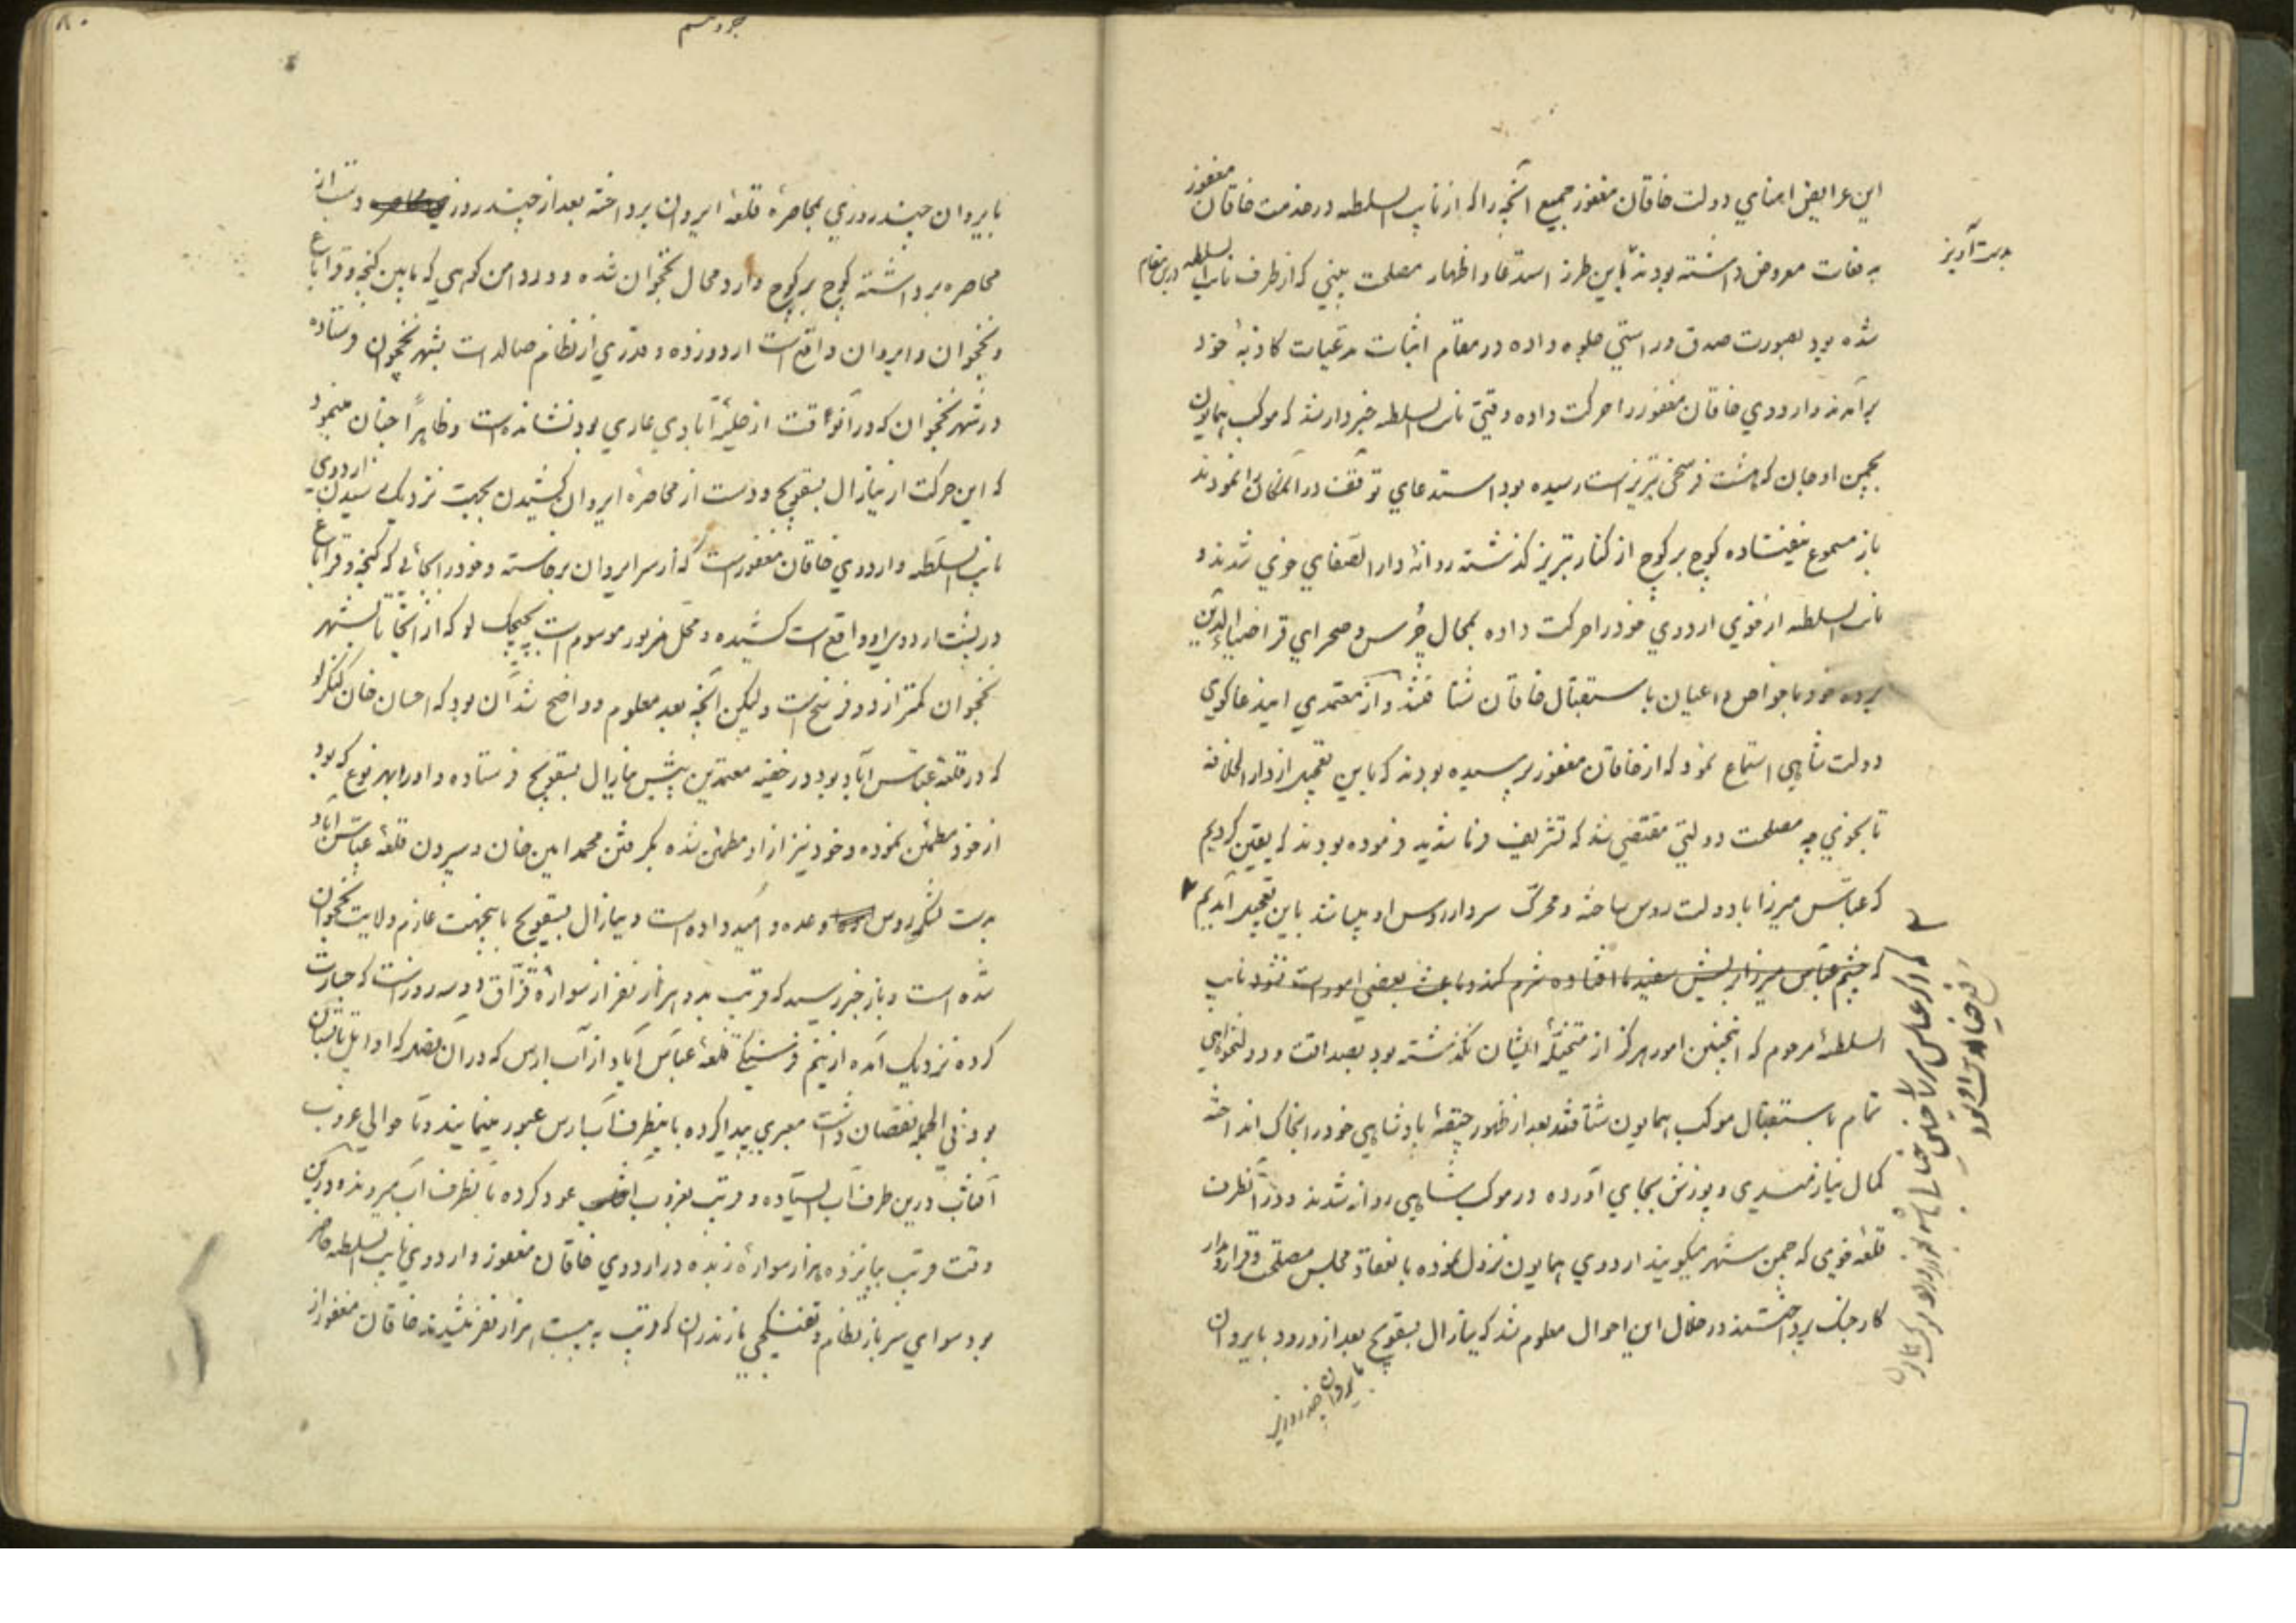 این عرایض امنای دولت خاقان مغفور جمیع آنچه را که از نایب السلطنه در خدمت خاقان مغفور
بدست آویز
به دفعات معروض داشته بودند باین طرز استدعا و اظهار مصلحت بینی که از طرف نایب السلطنه درین مقام
شده بود بصورت صدق و راستی جلوه داده در مقام اثبات مدعیات کاذبهٔ خود
برآمدند و اردوی خاقان مغفور را حرکت داده وقتی نایب السلطنه خبردار شد که موکب همایون
بچمن اوجان که هشت فرسخی تبریز است رسیده بود استدعای توقف در آنمکان را نمودند
باز مسموع نیفتاده کوچ بر کوچ از کنار تبریز گذشته روانهٔ دارالصفای خوی شدند و
نایب السلطنه از خوی اردوی خود را حرکت داده بمحال چرس و صحرای قراضیاءالدین
برده خود با خواص و اعیان باستقبال خاقان شتافتند و از معتمدی این دعاگوی
دولت شاهی استماع نمود که از خاقان مغفور پرسیده بودند که باین تعجیل از دارالخلافه
تا بخوی چه مصلحت دولتی مقتضی شد که تشریف فرما شدید فرموده بودند که یقین کردیم
که عباس میرزا با دولت روس ساخته و محرک سردار روس او میباشد باین تعجیل آمدیم
که چشم عباس میرزا بریش سفید ما افتاده شرم کند و باعث بعضی امورات نشود نایب
السلطنهٔ مرحوم که اینچنین امور هرگز از متخیلهٔ ایشان نگذشته بود بصداقت و دولتخواهی
تمام باستقبال موکب همایون شتافتند بعد از ظهور جیقهٔ پادشاهی خود را بخاک انداخته
کمال نیازمندی و پوزش بجای آورده در موکب شاهی روانه شدند و در آنطرف
قلعه خوی که چمن سنهر میگویند اردوی همایون نزول نموده بانعقاد مجلس مصلحت و قرارداد
کار جنگ پرداختند در خلال این احوال معلوم شد که ینارال بسقویچ بعد از ورود بایروان
بایروان چند روزی
جزو سیم
بایروان چند روزی بمحاصرهٔ قلعهٔ ایروان پرداخته بعد از چند روزی محاصره دست از
محاصره برداشته کوچ بر کوچ وارد محال نخجوان شده و در دامن کوهی که مابین گنجه و قراباغ
و نخجوان و ایروان واقع است اردو زده و قدری از نظام صالدات بشهر نخجوان فرستاده
در شهر نخجوان که در آنوقت از حلیهٔ آبادی عاری بود نشانده است و ظاهراً چنان مینمود
که این حرکت از ینارال بسقویچ و دست از محاصرهٔ ایروان کشیدن بجهت نزدیک رسیدن اردوی
نایب السلطنه و اردوی خاقان مغفور است که از سر ایروان برخاسته و خود را بجائی که گنجه و قراباغ
در پشت اردوی او واقع است کشیده و محل مزبور موسوم است بچیچک لو که از آنجا تا بشهر
نخجوان کمتر از دو فرسخ است ولیکن آنچه بعد معلوم و واضح شد آن بود که احسان خان کنگرلو
که در قلعهٔ عباس آباد بود در خفیه معتمدین پیش ینارال بسقویچ فرستاده و او را بهر نوع که بود
از خود مطمئن نموده و خود نیز از او مطمئن شده بگرفتن محمد امین خان و سپردن قلعهٔ عباس آباد
بدست لشکر روس وعده و امید داده است و ینارال بسقویچ باینجهت عازم ولایت نخجوان
شده است و باز خبر رسید که قریب بدو هزار نفر از سوارهٔ قزاق دو سه روز است که جسارت
کرده نزدیک آمده از نیم فرسنگی قلعهٔ عباس آباد از آب ارس که در آن فصل که اوایل تابستان
بود فی الجمله نقصان داشت معبری پیدا کرده باینطرف آب ارس عبور مینمایند و تا حوالی غروب
آفتاب درین طرف آب ایستاده و قریب بغروب آفتاب عود کرده بآنطرف آب میروند و در آن
وقت قریب بپانزده هزار سوارهٔ زبده در اردوی خاقان مغفور و اردوی نایب السلطنه حاضر
بود سوای سرباز نظام و تفنگچی مازندران که قریب به بیست هزار نفر میشدند خاقان مغفور از